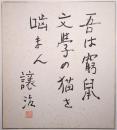 吾は窮鼠
文学の猫を
噛まん
譲治